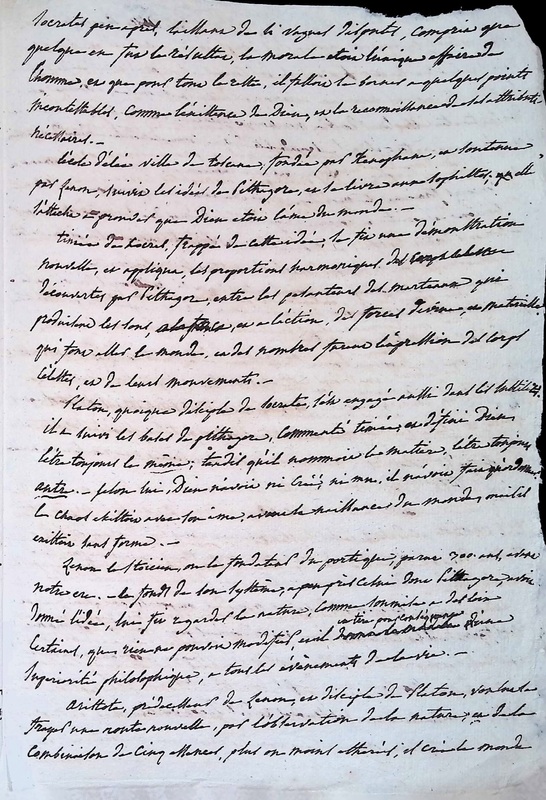 Socrates peu après, las de ces vagues disputes, comprit que
quelque en fut le résultat, la morale etoit l'unique affaire de
l'homme, et que pour tout le reste, il falloit se borner a quelques points
incontestables, comme l'existence de Dieu, et la reconnoissance de ses attributs
nécessaires. —
L'école d'élée ville de fondée par Xenophane, et soutenue
par Zenon, suivit les idées de Pithagore, et se livra aux sophistes; elle
s'attacha a prouver que Dieu etoit l'ame du monde. —
timée de Locres, frappé de cette idée, en fit une démonstration
nouvelle, et appliqua, les proportions harmoniques,
découvertes par Pithagore, entre les pesanteurs des marteaux qui
produisent les sons, et a l'action, des forces divine, et materielle
qui font aller le monde, et des nombres furent l'expression des corps
célestes, et de leurs mouvements. —
Platon, quoique disciple de Socrate, s'est engagé aussi dans les subtilités,
il a suivi les bases de pithagore, commenté timée, et défini Dieu,
l'être toujours le même; tandis qu'il nommoit la matiere, l'être toujours
autre. — selon lui, Dieu n'avoit ni créé, ni mu, il n'avoit fait qu'ordonner
le chaos existoit avec son ame, avant la naissance du monde, mais il
existoit sans forme. —
Zenon le stoicien, ou le fondateur du portique, parut 300 ans, avant
notre ere. — le fond de son système, a peu près celui dont Pithagore, avoit
donné l'idée, lui fit regarder la nature, comme soumise a des loix
certaines, que rien ne pouvoit modifier, et il par conséquent d'une
superiorité philosophique, a tous les évènements de la vie. —
Aristote, prédécesseur de Zenon, et disciple de Platon, voulut se
frayer une route nouvelle, par l'observation de la nature; et de la
combinaison de cinq élémens, plus ou moins éthérés, il créa le monde